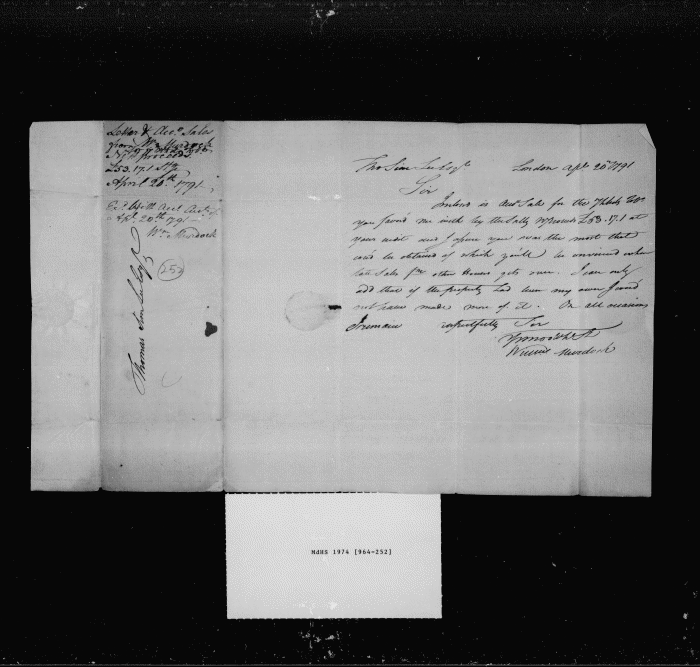 Letter & Acc.o Sales
from Wm Murdock
Nt Proceeds
£53.17.1 Stg
April 20th 1791
Apl. 20th 1791
Wm Murdock
252
Thomas Sim Lee Esqr
Tho Sim Lee Esqr. London Apl 20th 1791
Sir
Inclos'd is Acct Sales for the 7 hhds Tobo
you favor'd me with by the Sally Nt proceeds £53.17.1 at
your credit and I assure you was the most that
cou'd be obtained of which you'll be convinced when
late Sales from other Houses gets over. I can only
add that if the property had been my own I could
not have made more of it. On all occasions
I remain respectfully Sir
Your
William Murdock
MdHS 1974 [964-252]